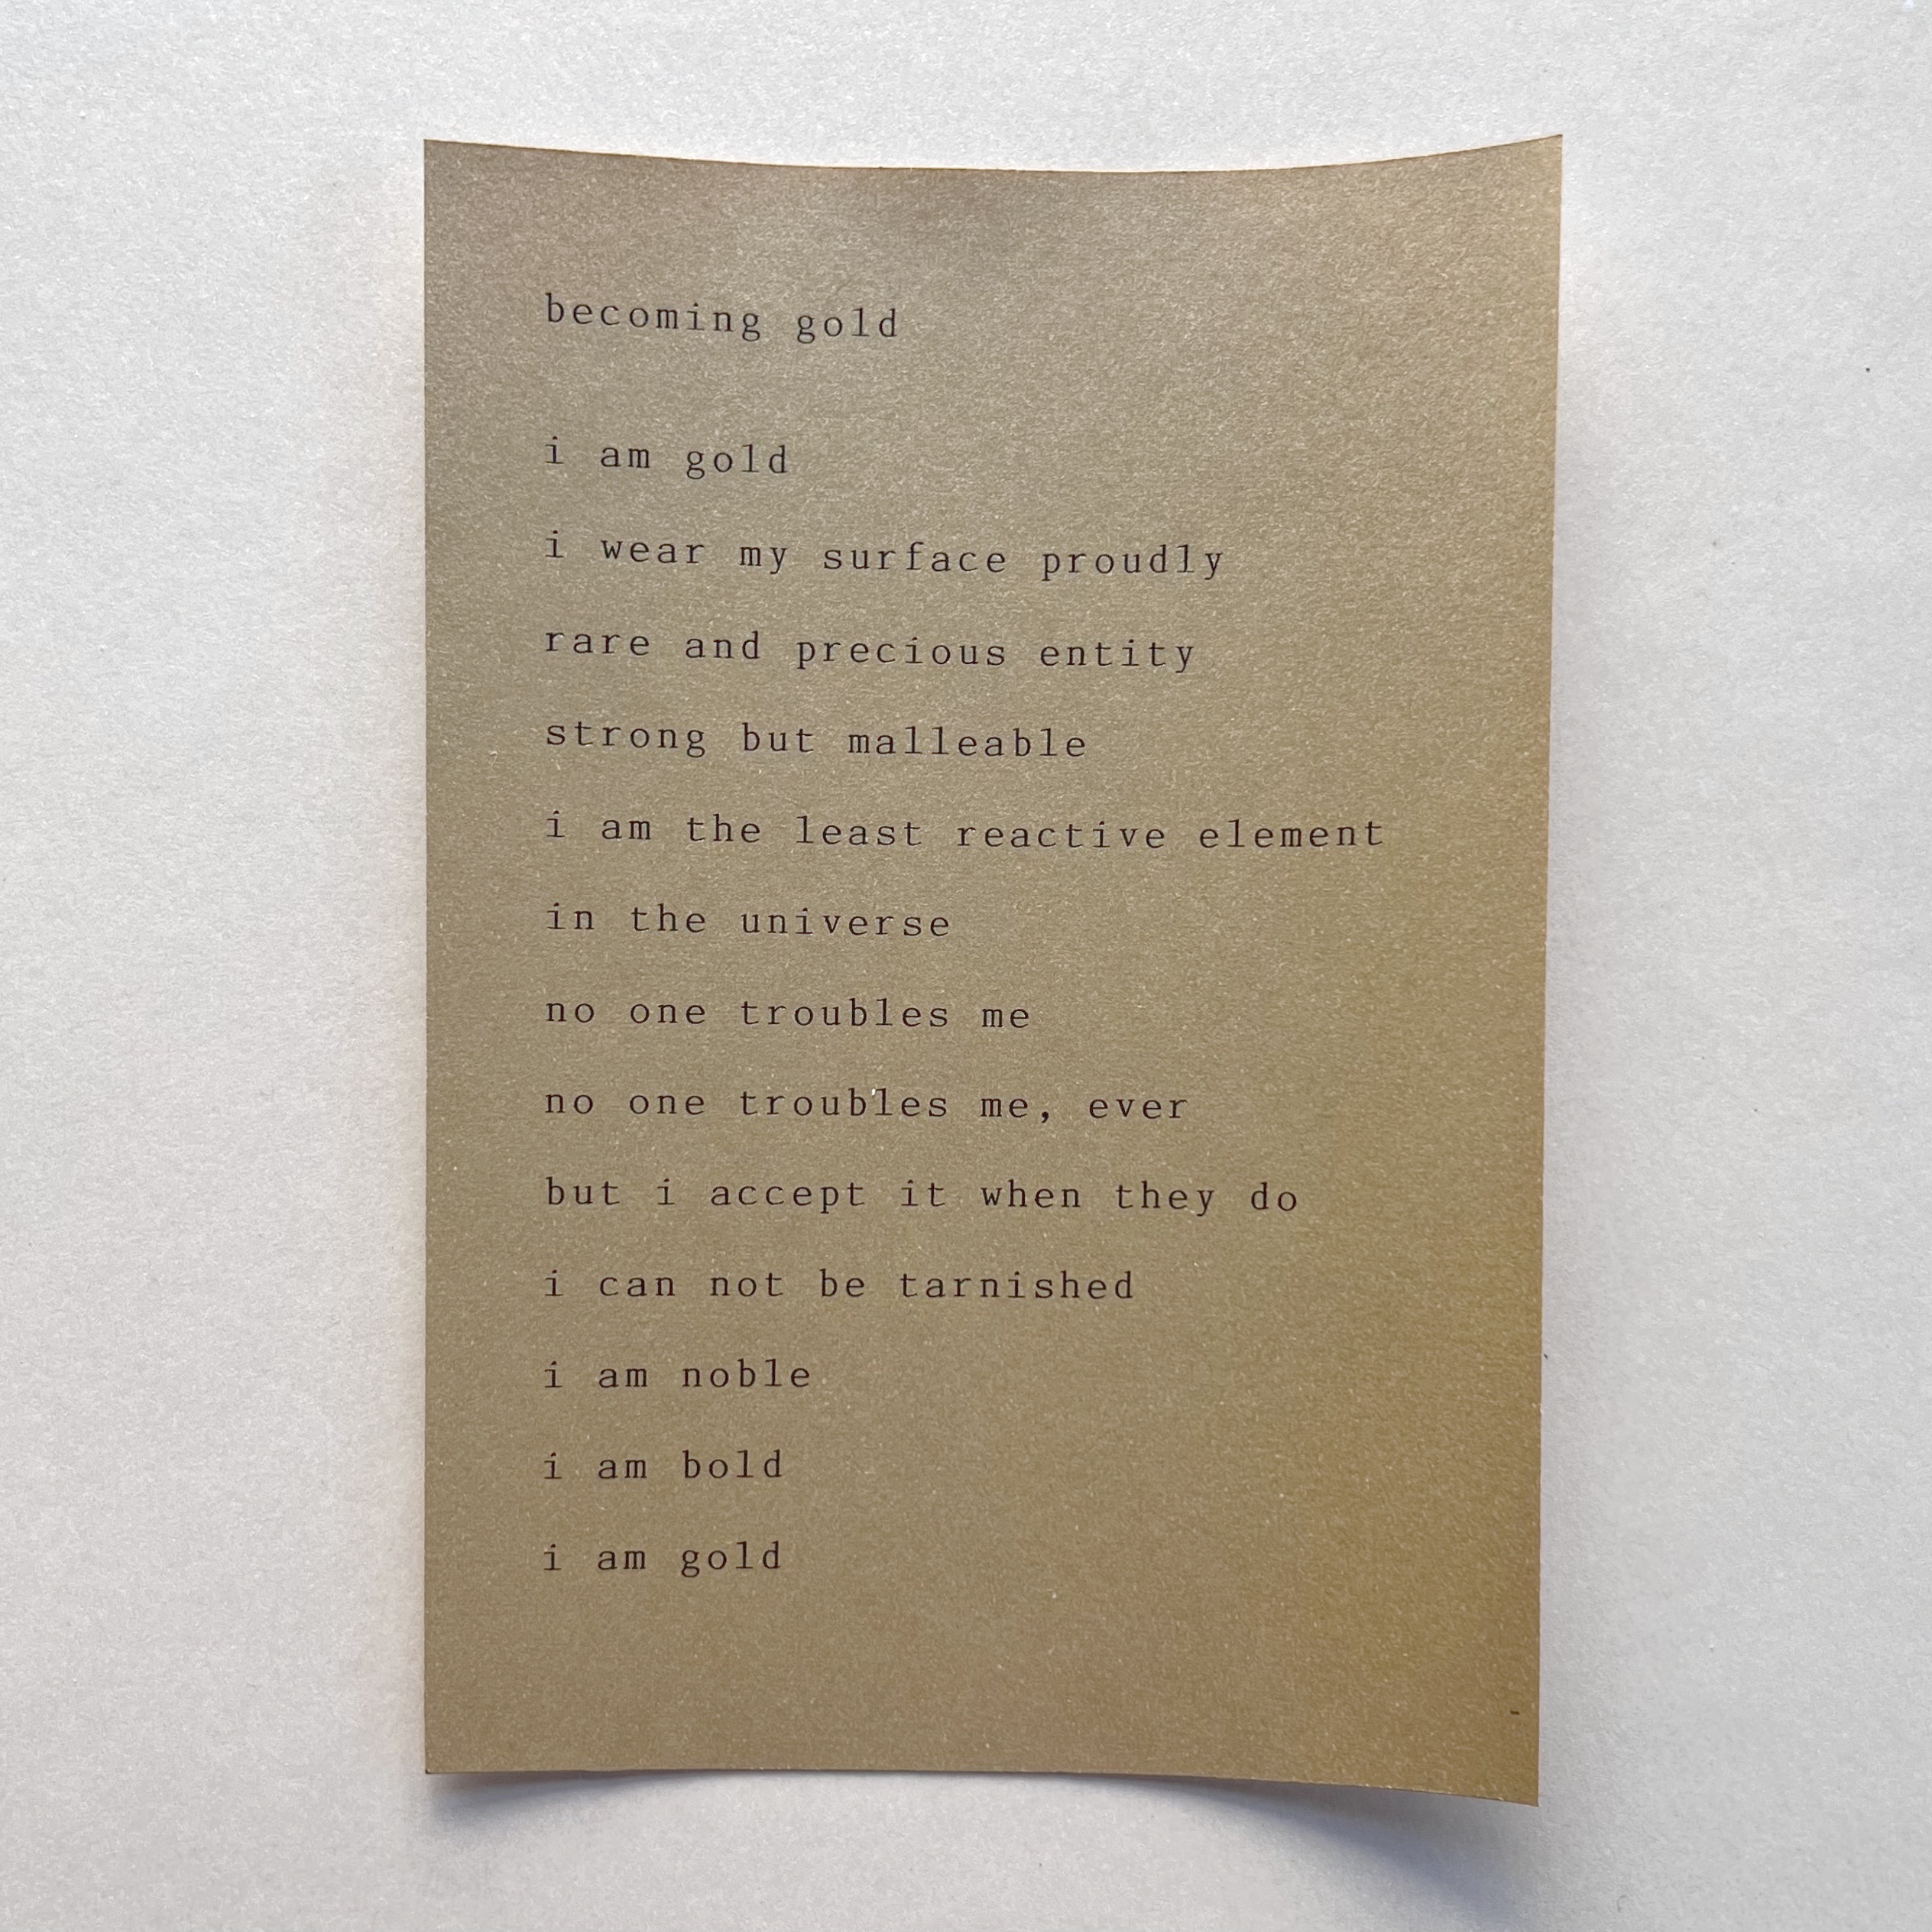 becoming gold
i am gold
i wear my surface proudly
rare and precious entity
strong but malleable
i am the least reactive element
in the universe
no one troubles me
no one troubles me, ever
but i accept it when they do
i can not be tarnished
i am noble
i am bold
i am gold